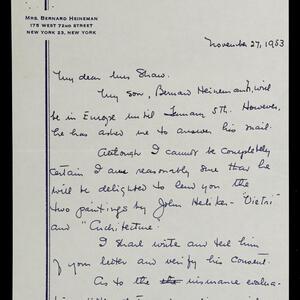 MRS. BERNARD HEINEMAN
175 WEST 72ND STREET
NEW YORK 23, NEW YORK
November 27, 1953
My dear Mrs Shaw.
My son, Bernard Heineman Jr, will
be in Europe until January 5th. However,
he has asked me to answer his mail.
Although I cannot be completely
certain I am reasonably sure that he
will be delighted to lend you the
two paintings by John Heliker - "Vietri"
and "Architecture."
I shall write and tell him
of your letter and verify his consent.
As to the insurance evalua-